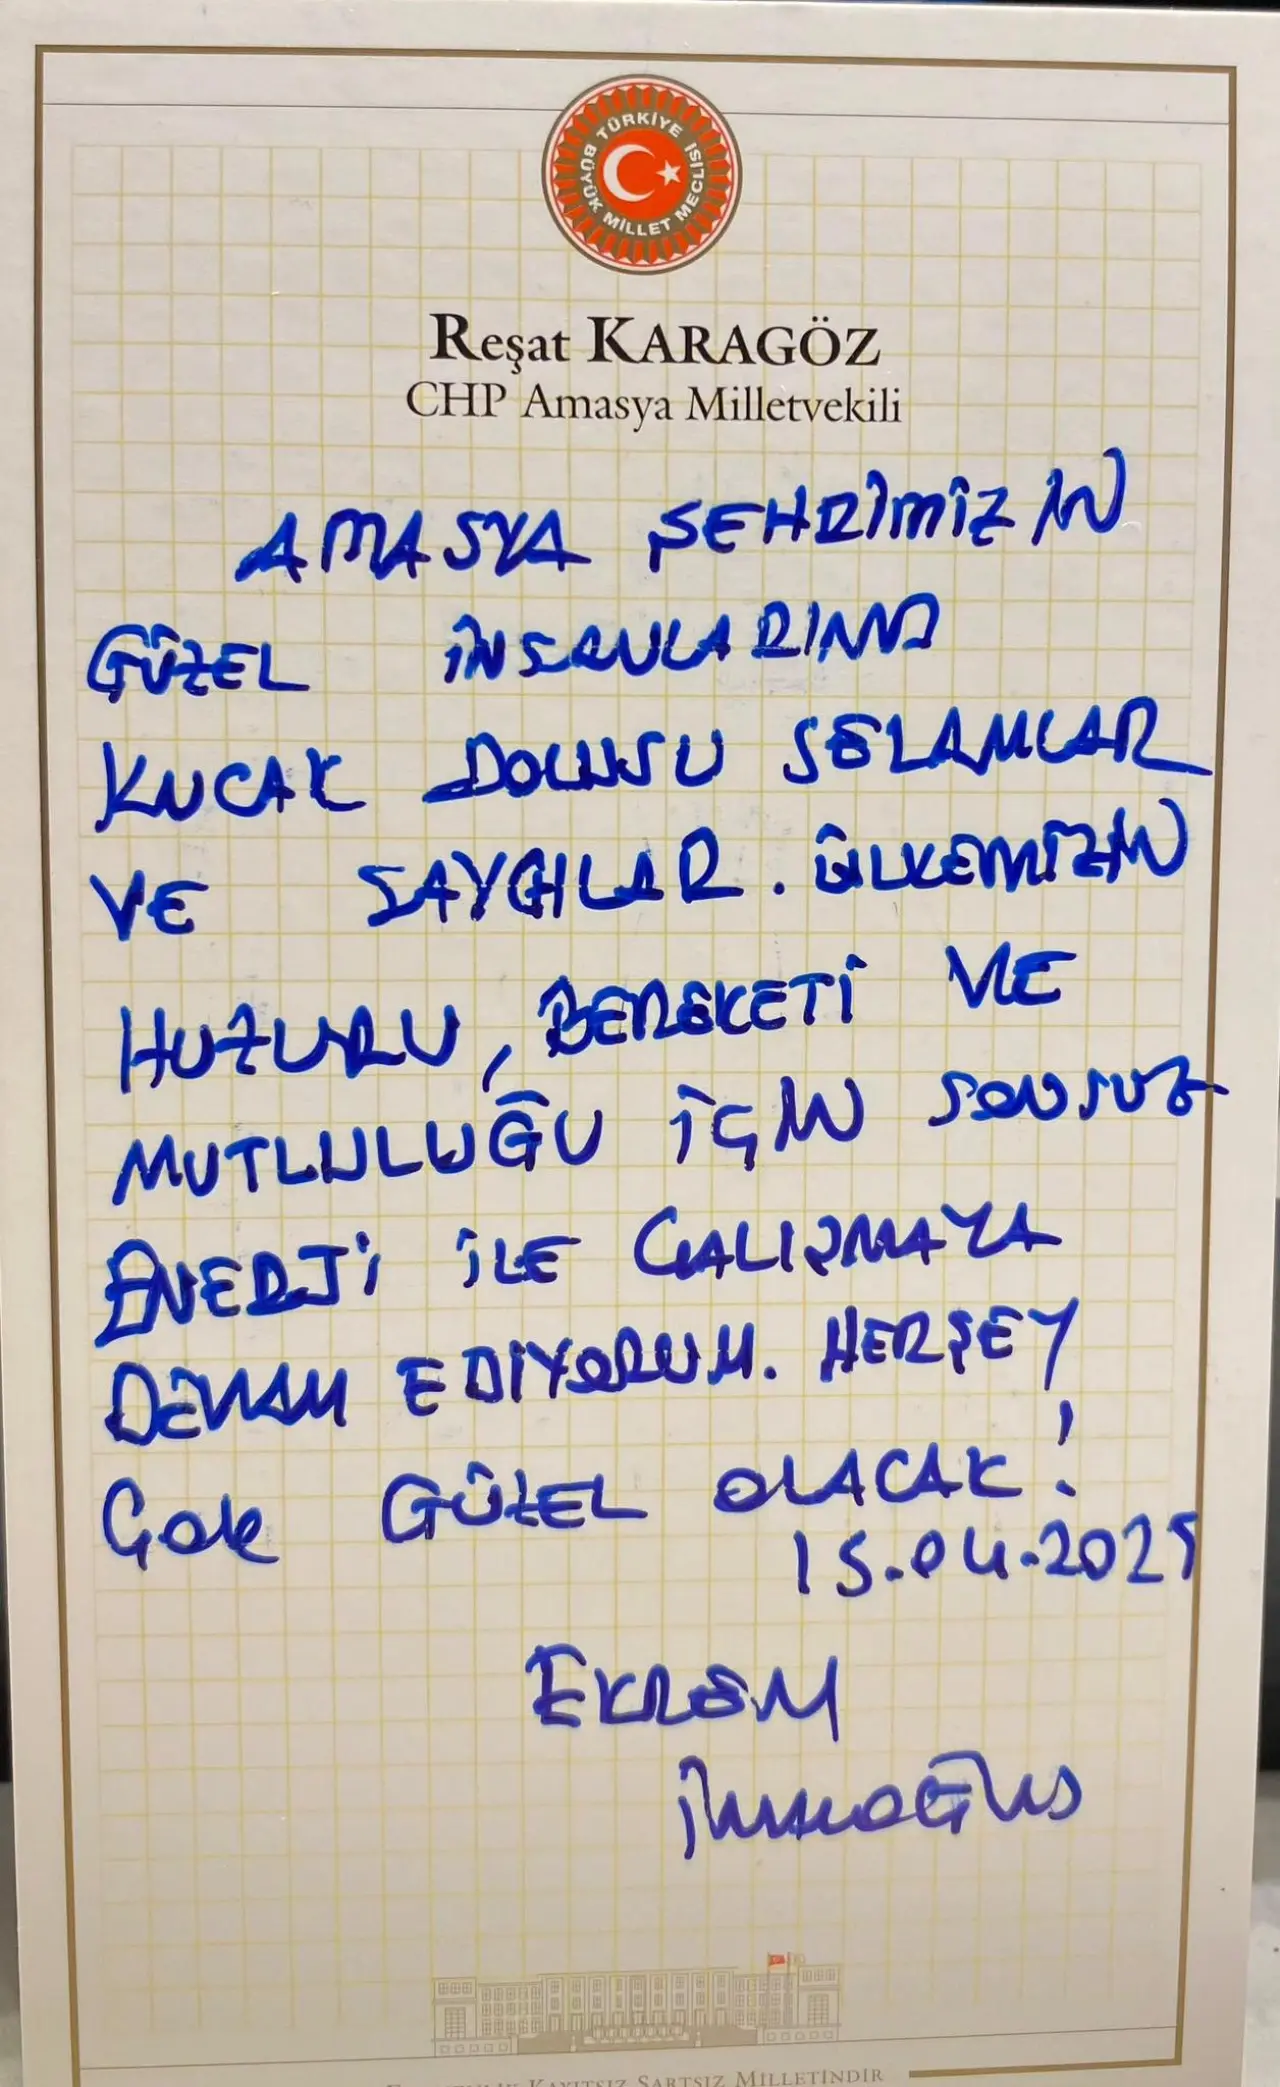 TÜRKİYE
BÜYÜK MİLLET MECLİSİ
Reşat KARAGÖZ
CHP Amasya Milletvekili
AMASYA ŞEHRİMİZİN
GÜZEL İNSANLARINA
KUCAK DOLUSU SELAMLAR
VE SAYGILAR. ÜLKEMİZİN
HUZURU, BEREKETİ VE
MUTLULUĞU İÇİN SONSUZ
ENERJİ İLE ÇALIŞMAYA
DEVAM EDİYORUM. HERŞEY
ÇOK GÜZEL OLACAK!
15.04.2025
EKREM
İMAMOĞLU
KAYITSIZ ŞARTSIZ MİLLETİNDİR